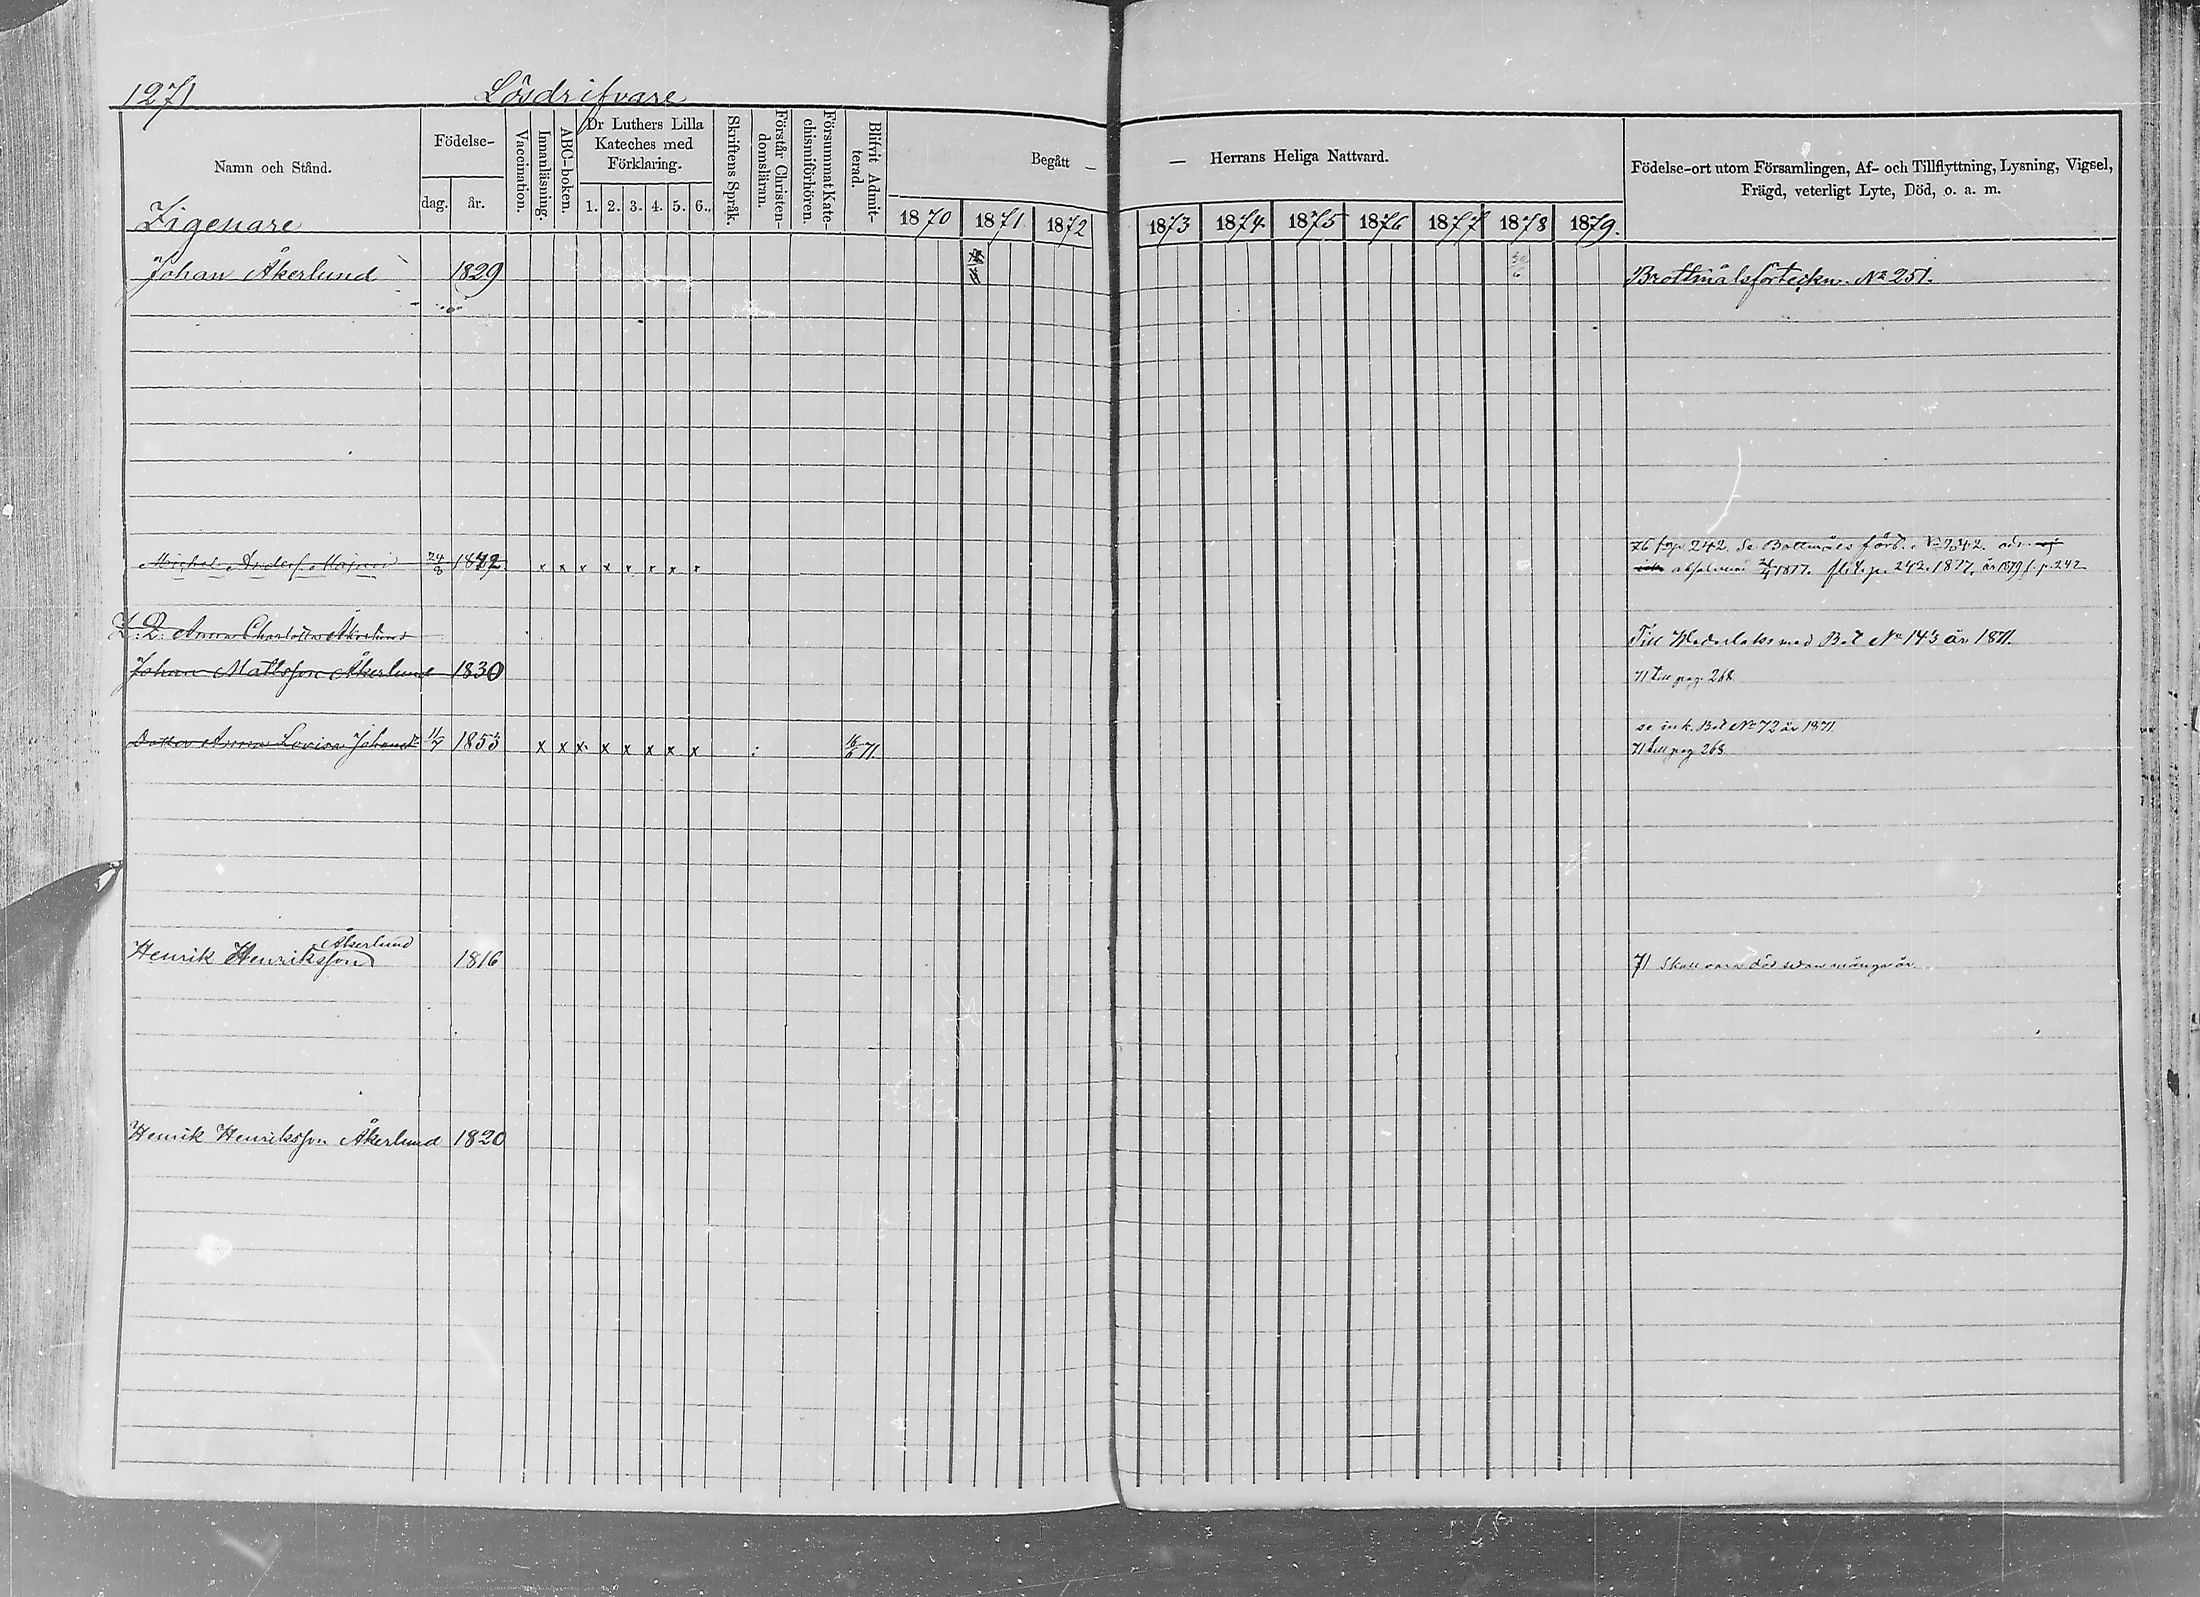 1271 Lösdrifvare
Namn och Stånd. Födelse- dag. år. Vaccination. Innanläsning. ABC-boken. Dr Luthers Lilla Kateches med Förklaring. 1. 2. 3. 4. 5. 6. Skriftens Språk. Förstår Christendomsläran. Försummat Katechismiförhören. Blifvit Admitterad. Begått — — Herrans Heliga Nattvard. Födelse-ort utom Församlingen, Af- och Tillflyttning, Lysning, Vigsel,
Frägd, veterligt Lyte, Död, o. a. m.
1870 1871 1872 1873 1874 1875 1876 1877 1878 1879.
Zigenare
Johan Åkerlund 1829 30/6 Brottmålsförteckn. No 251.
76 pag 242. Se
Michel Anders 24/8 x x x x x x x x 1877. p. 242. 1877. år 1879 p. 242
Z. D. Anna Charlotta Åkerlund Till med Bet No 143 år 1871.
Johan Mattsson Åkerlund 1830 71 till pag. 268
se ink. Bet No 72 år 1871.
Dotter Anna Lovisa Johansdr 11/7 1853 x x x x x x x x 16/6 71. 71 till pag 268
Åkerlund
Henrik Henriksson 1816 71 Skall vara död sedan många år.
Henrik Henriksson Åkerlund 1820